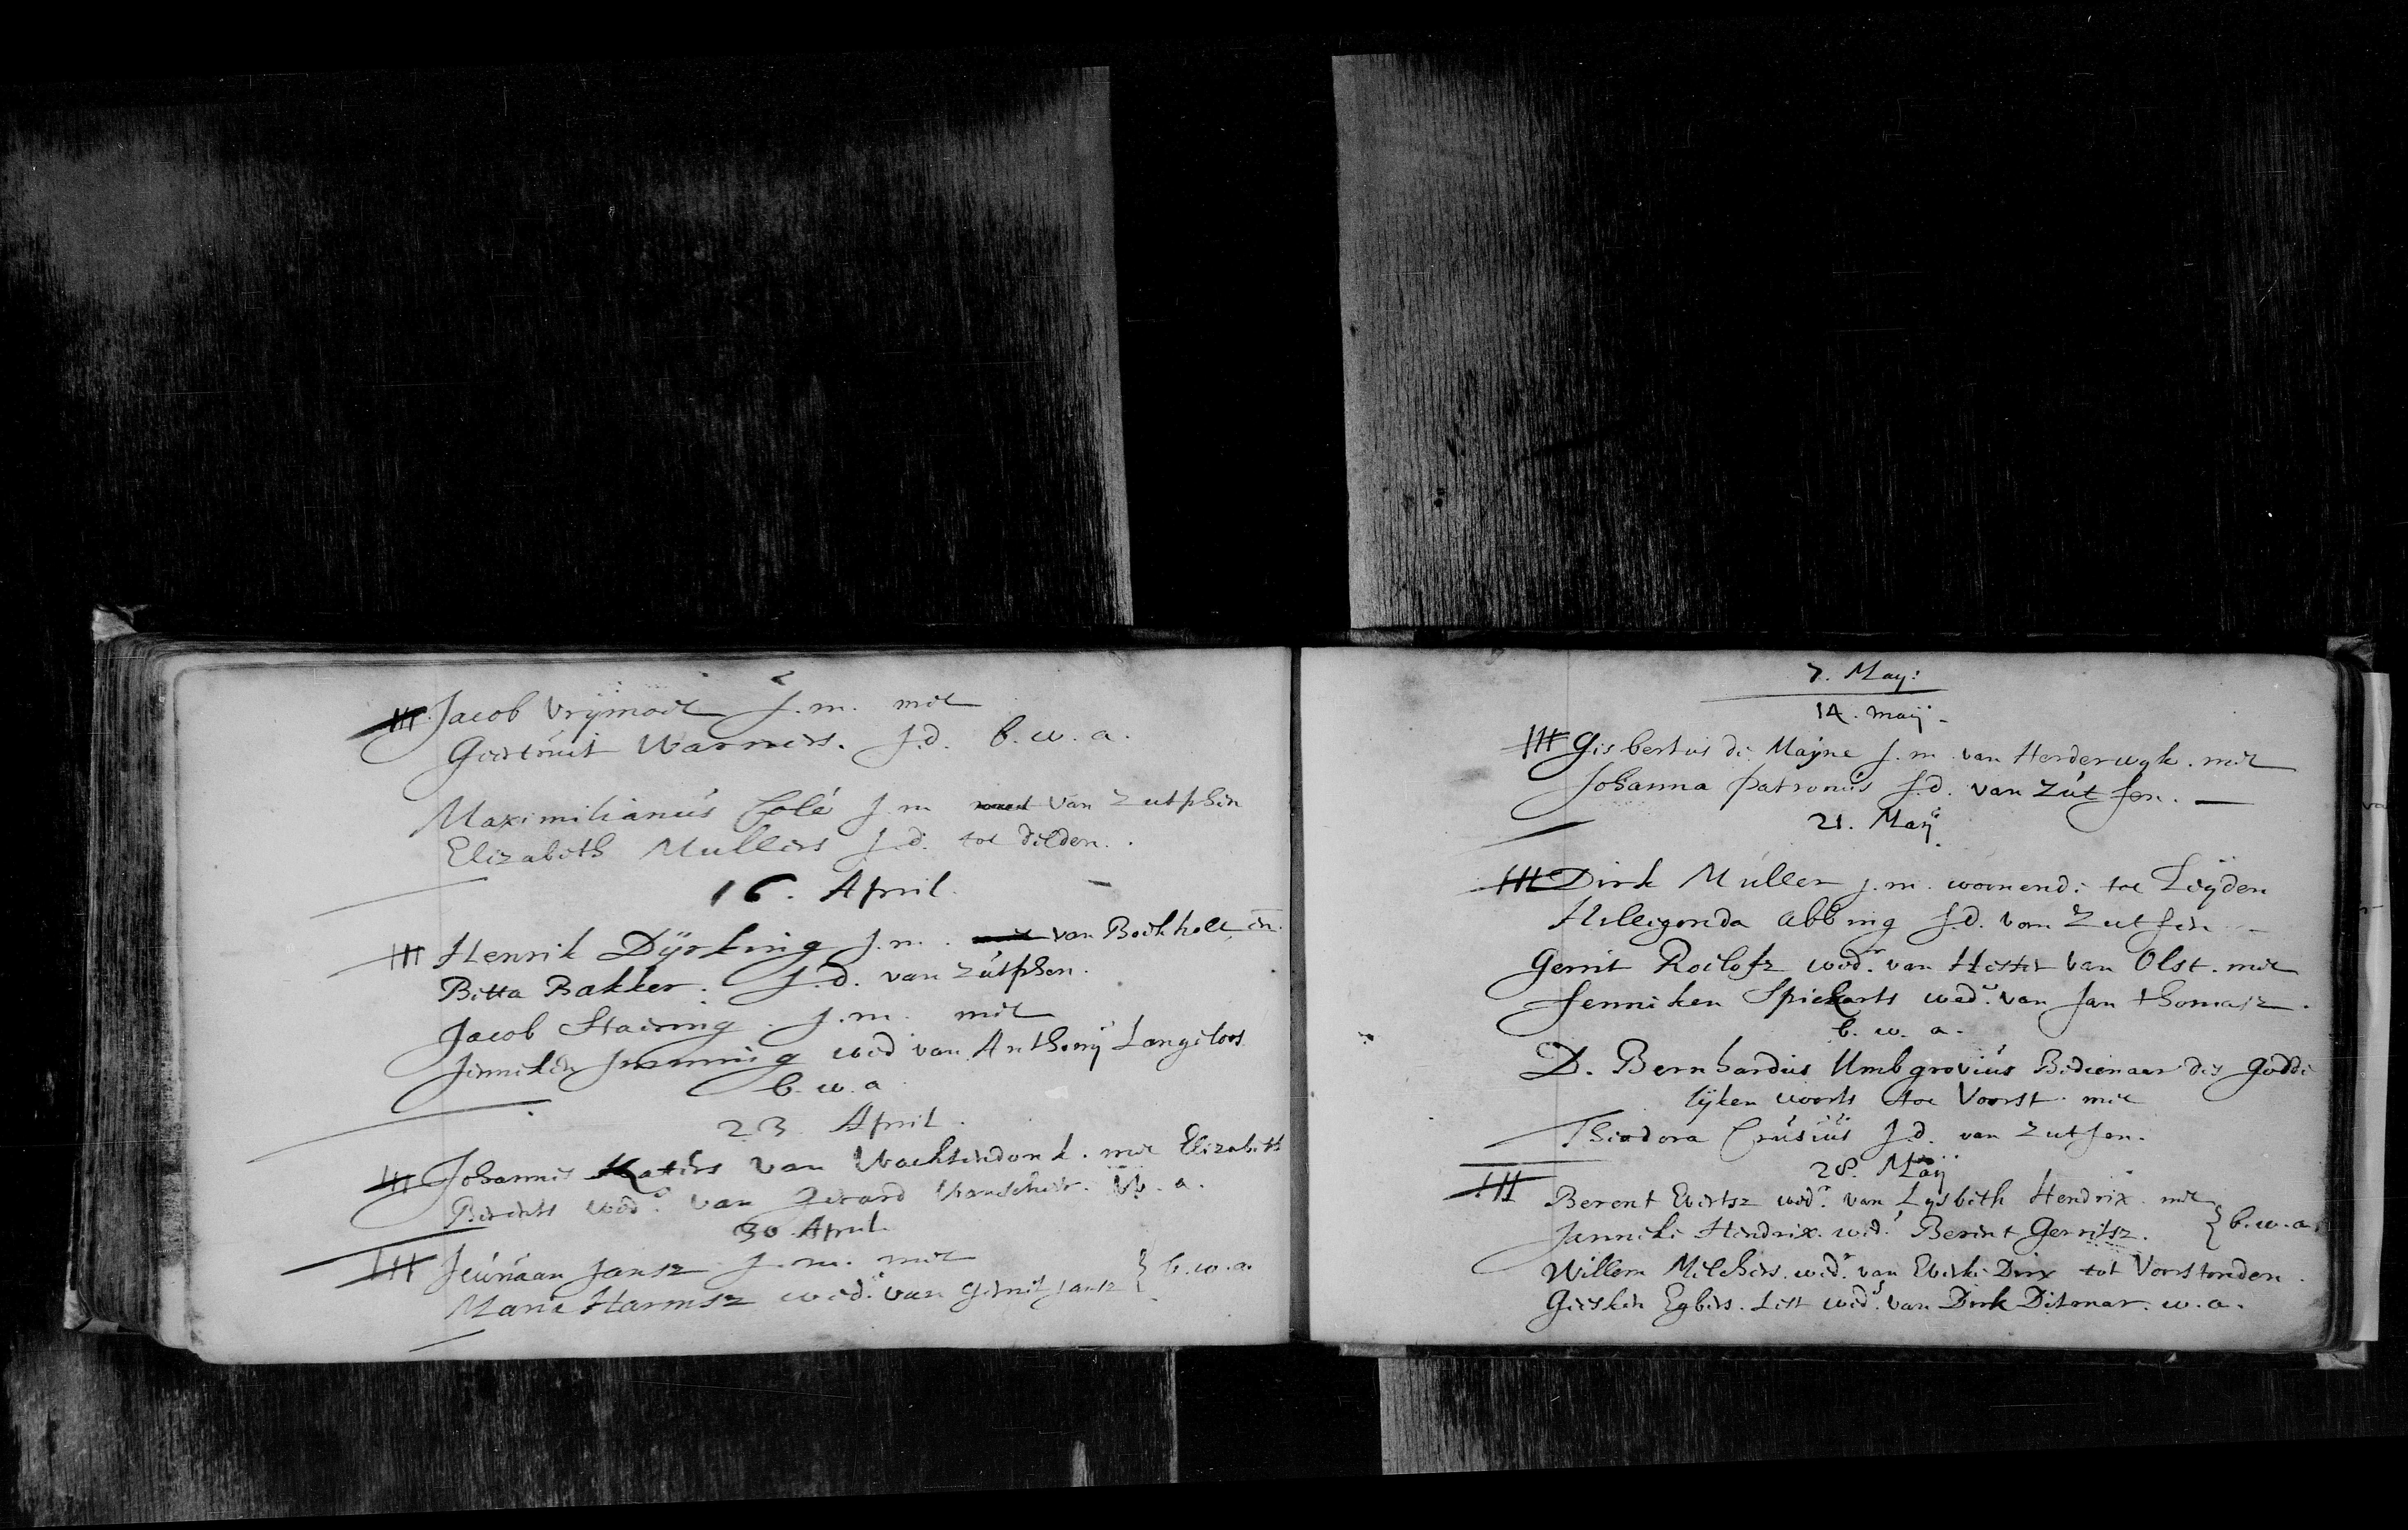 Jacob Vrymoet J.m. met
Geertruit Warners. J.d. b.w.a.
Maximilianus Colé J.m van Zutphen
Elizabeth Mullers J.d. tot delden.
16. April.
Henrik Dÿrking J.m. van Bockholt, en
Bitta Bakker. J.d. van Zutphen.
Jacob Staring. J.m. met
Jenneken wed van Anthonÿ Langeloos
b.w.a
23 April.
Johannes Katers van Wachtendonk. met Elizabeth
wed.e van Gerard w.a.
30. April.
Jansz. J.m. met
Maria Harmsz wed.e van Gerrit Jansz } b.w.a.
7. May:
14. maÿ.
Gisbertus de Mayne J.m. van Harderwyk. met
Johanna Patronus J.d. van Zutfen.
21. Maÿ.
Dirk Muller j.m. woonende tot Leÿden
Hillegonda Abbing J.d. van Zutfen
Gerrit Roelofz wed.r van Hester van Olst. met
Jenniken Spiekarts wed.e van Jan Thomasz.
b.w.a.
D. Bernhardus Umbgrovius Bedienaar des godde
lyken woorts tot Voorst. met
Theodora Crusius J.d. van Zutfen.
28. Maÿ
Berent Evertsz wed.r van Lysbeth Hendrix. met
Janneke Hendrix. wed.e Berent Gerritsz. } b.w.a.
Willem Melchers. wed.r van Everke Dirx tot Voorstonden.
Geesken Egbers. Lest wed.e van Dirk Ditmar. w.a.